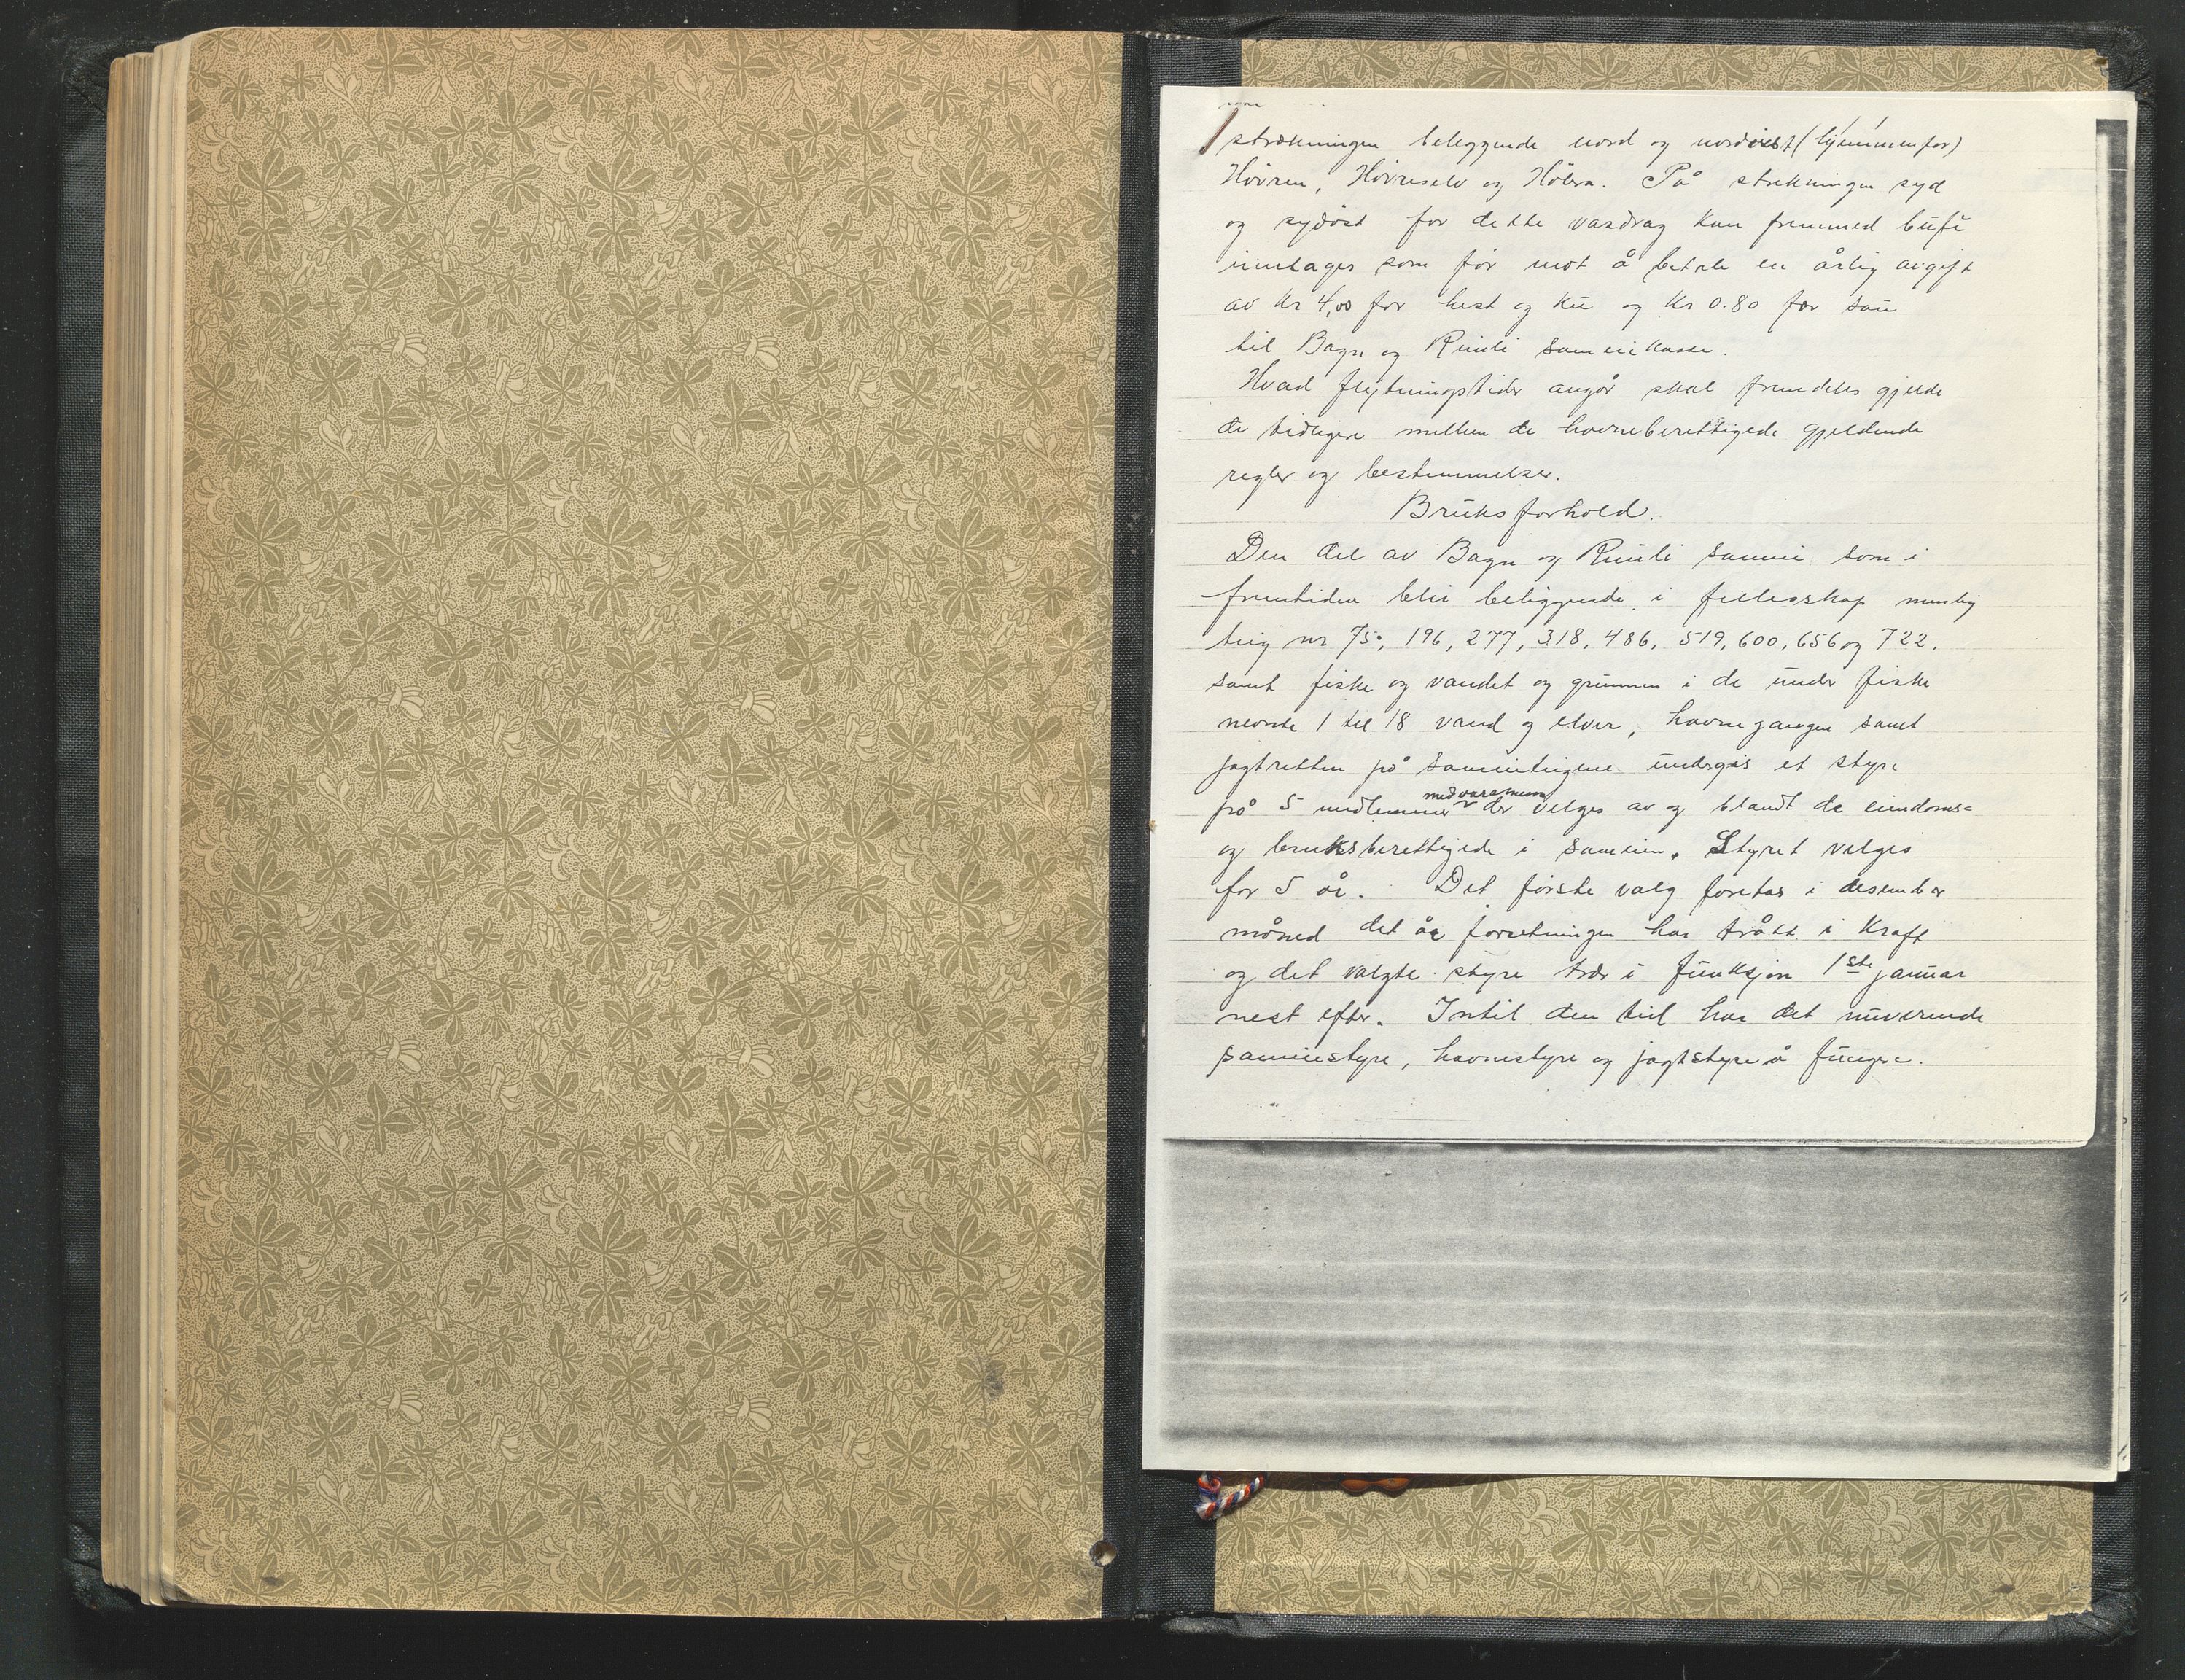 strækningen beleggende nord og nordvest (hjemmenfor)
Hövren, Hövreselv og Hölera. På strekningen syd
og sydöst for dette vasdrag kan fremmed bufe
inntages som för mot å betale en årlig avgift
av kr 4,00 for hest og ku og kr 0.80 for sau
til Bagn og Rinli sameiekasse.
Hvad flytningstider angår skal fremdeles gjelde
de tidligere mellem de havneberettigede gjeldende
regler og bestemmelser.
Bruksforhold.
Den del av Bagn og Rinli sameie som i
fremtiden blir beliggende i fellesskap nemlig
teig nr 75, 196, 277, 318, 486, 519, 600, 656 og 722.
samt fiske og vandet og grunnen i de under fiske
nevnte 1 til 18 vand og elver, havnegangen samt
jagtretten på sameieteigene undergis et styre
på 5 medlemmer med varamenn der velges av og blandt de eiendoms=
og bruksberettigede i sameien. Styret velges
for 5 år. Det förste valg foretas i desember
måned det år forretningen har trått i kraft
og det valgte styre trær i funksjon 1ste januar
nest efter. Intil den tid har det nuværende
sameiestyre, havnestyre og jagtstyre å fungere.